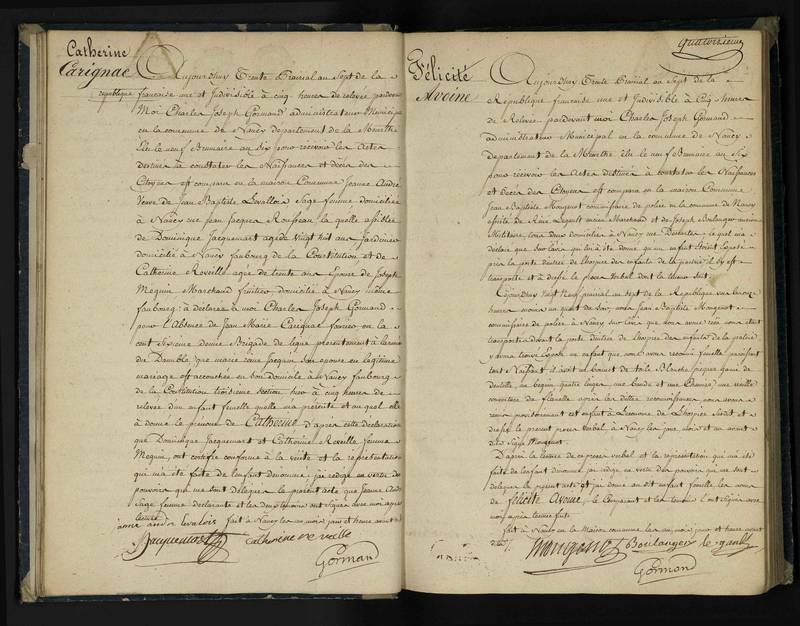 Catherine
Carignac
Aujourd'huy Trente Prairial an Sept de la
republique française une et Indivisible à cinq heures de relevée pardevant
Moi Charles Joseph Gormand administrateur Municipal
en la commune de Nancy departement de la Meurthe
Elu le neuf Brumaire au Six pour recevoir les actes
destinés à constater les Naissances et décès des
Citoyens est comparu en la maison Commune Jeanne André
Veuve de Jean Baptiste Levallois Sage femme domiciliée
à Nancy rue Jean Jacques Rousseau la quelle assistée
de Dominique Jacquemart agé de vingt huit ans Jardinier
domicilié à Nancy faubourg de la Constitution et de
Catherine Reveille agée de trente ans Epouse de Joseph
Mequin Marchand fruitier domicilié à Nancy même
faubourg à declaré à moi Charles Joseph Gormand
pour l'Absence de Jean Marie Carignac fourier en la
cent Sixieme demie Brigade de ligne presentement à l'armée
du Danube, que marie anne Jacquin son epouse en legitime
mariage est accouchée en son domicile à Nancy faubourg
de la Constitution troisieme section hier à cinq heures de
relevée d'un enfant femelle quelle m'a présenté et au quel elle
à donné le prenom de Catherine d'après cette declaration
que Dominique Jacquemart et Catherine Reveille femme
Mequin, ont certifié conforme à la verité et la représentation
qui m'a été faite de l'enfant denommé; j'ai redigé en vertu des
pouvoirs qui me sont délégués le présent acte que Jeanne André
Sage femme declarante et les deux témoins ont signés avec moi après
lecture fait à Nancy les an mois jour et heure avant dits
anne andre levalois
Jacquemart Catherine reveille
Gormand
quatorzieme
Félicité
Avoine
Aujourd'huy Trente Prairial an Sept de la
Republique française une et Indivisible à Cinq heures
de Relevée pardevant moi Charles Joseph Gormand
administrateur Municipal en la commune de Nancy
departement de la Meurthe Elu le neuf Brumaire au Six
pour recevoir les Actes destinés à constater les Naissances
et Décès des Citoyens est comparu en la maison Commune
Jean Baptiste Mougenot commissaire de police en la commune de Nancy
assisté de Marchand et de Joseph Boulanger ancien
Militaire, tous deux domiciliés à Nancy rue lequel m'a
declaré que sur l'avis qui lui à été donné qu'un enfant étoit Exposé
près la porte d'entrée de l'hospice des enfants de la patrie, il s'y est
transporté et à dressé le procès Verbal dont la teneur suit.
Cejourd'huy vingt Neuf prairial an sept de la Republique vers les onze
heures moins un quart du soir nous Jean Baptiste Mougenot
commissaire de police à Nancy sur l'avis que nous avons reçu nous étant
transporté devant la porte d'entrée de l'hospice des enfants de la patrie
y avons trouvé Exposé un enfant que nous avons reconnu femelle paraissant
tout à Naissant il avoit un bonnet de toile Blanche piquée garni de
dentelle, un beguin, quatre langes, une bande et une Chemise, une vieille
couverture de flanelle après les dittes reconnoissances nous avons
remis provisoirement cet enfant à l'econome de l'hospice susdit et
dressé le présent procès verbal à Nancy les jour, mois et an avant
dits Signé Mougenot.
D'après la lecture de ce procès verbal et la représentation qui m'a été
faite de l'enfant denommé j'ai redigé en vertu des pouvoirs qui me sont
délégués le présent acte et j'ai donné au dit enfant femelle les noms
de félicité Avoine, le Comparant et les témoins l'ont signé avec
moi après lecture faite
fait à Nancy en la Maison commune les an mois jour et heure avant
dits.
Mougenot Boulanger
Gormand